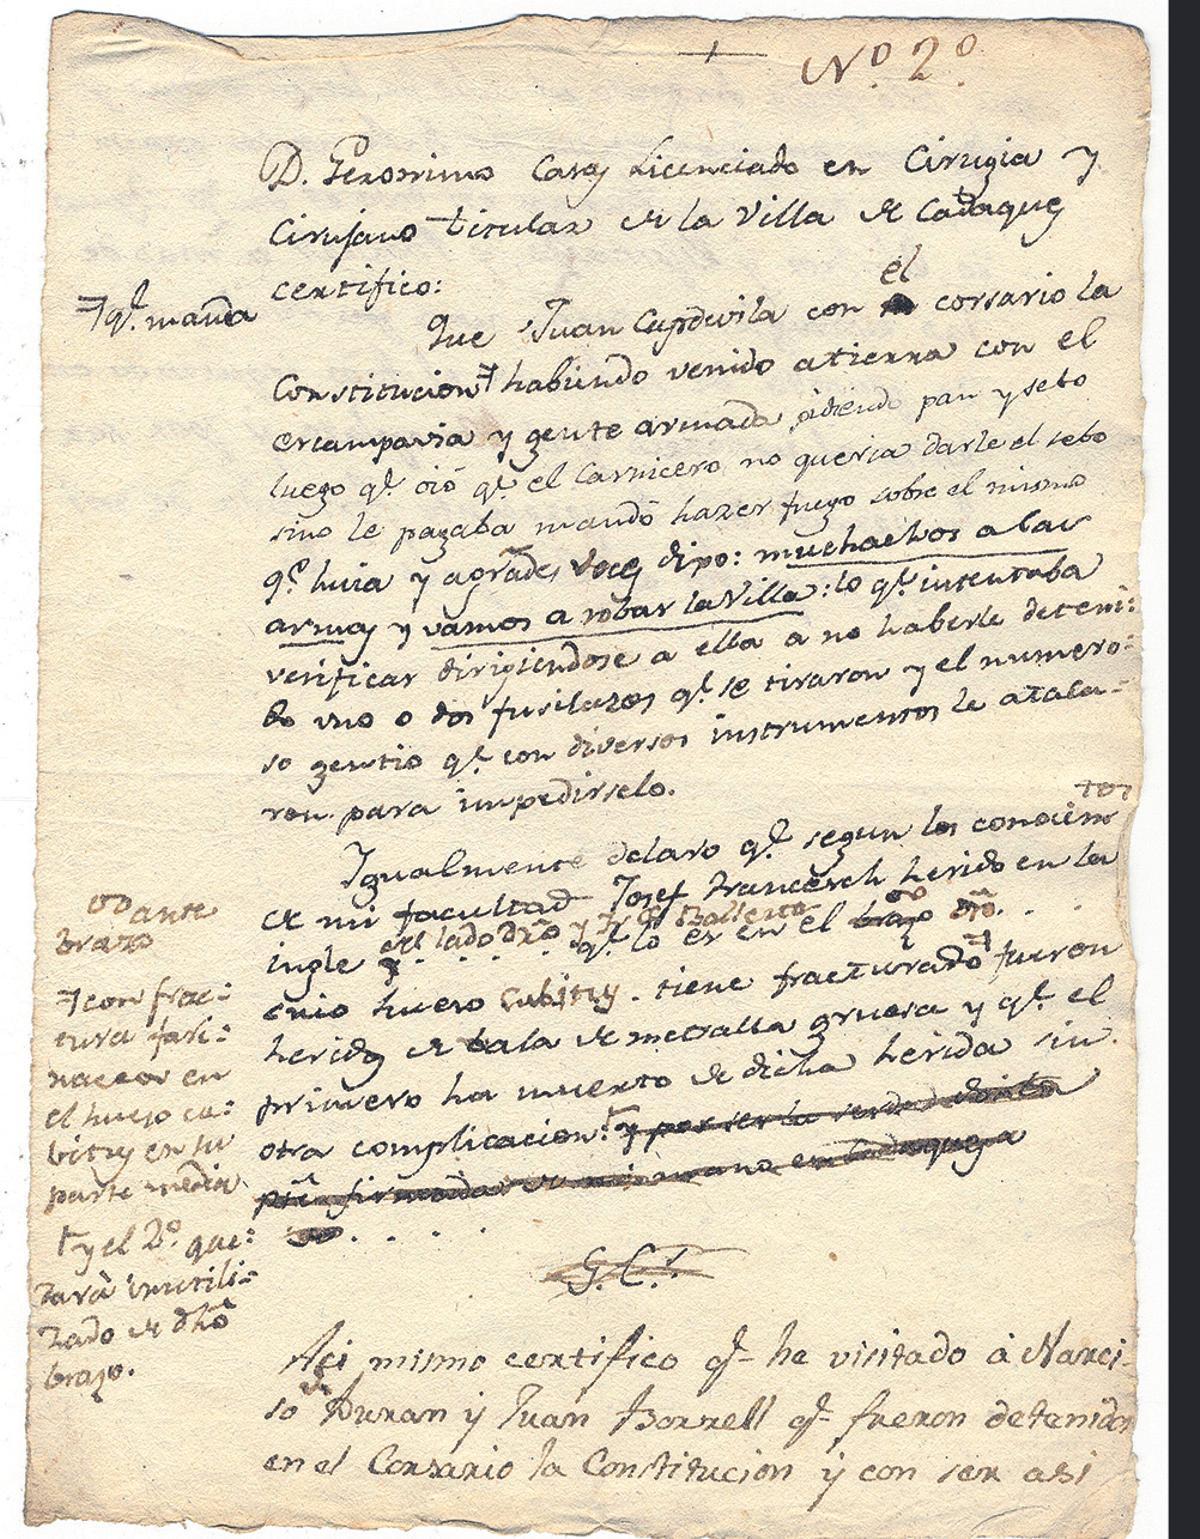 Nº. 2º
D. Geronimo Casas Licenciado en Cirugia y
Cirujano titular de la Villa de Cadaques
certifico:
⌐ qe. manda
Que Juan Capdevila con el corsario la
Constitucion ⌐ habiendo venido a tierra con el
escampavia y gente armada pidiendo pan y sebo
luego qe. oió qe. el Carnicero no queria darle el sebo
sino le pagaba mandò hazer fuego sobre el mismo
qe. huia y a grandes voces dixo: muchachos a las
armas y vamos a robar la Villa: lo qe. intentaba
verificar dirigiendose a ella a no haberle deteni:
do uno o dos fusilazos qe. se tiraron y el numero:
so gentio qe. con diversos instrumentos le ataca-:
ron para impedirselo.
Igualmente declaro qe. segun los conocimientos
de mi facultad Josef Francesch herido en la
ingle del lado dro y Ballesta qe. lo es en el brazo dro. . .
ante
brazo
cuio hueso cubitus. tiene fracturado ⌐ fueron
heridos de bala de metralla gruesa y qe. el
primero ha muerto de dicha herida sin
otra complicacion: y por ser la verdad doi la
pte. firmada de mi mano en Cadaques a
. . . .
⌐ con frac:
tura
en
el hueso cu:
bitus en su
parte media
† y el 2º. que:
darà inutili:
zado de dho
brazo.
G. C.
Asi mismo certifico qe- he visitado à Narci-
so Duran y Juan Borrell qe- fueron detenidos
en el Corsario la Constitucion y con ser asi